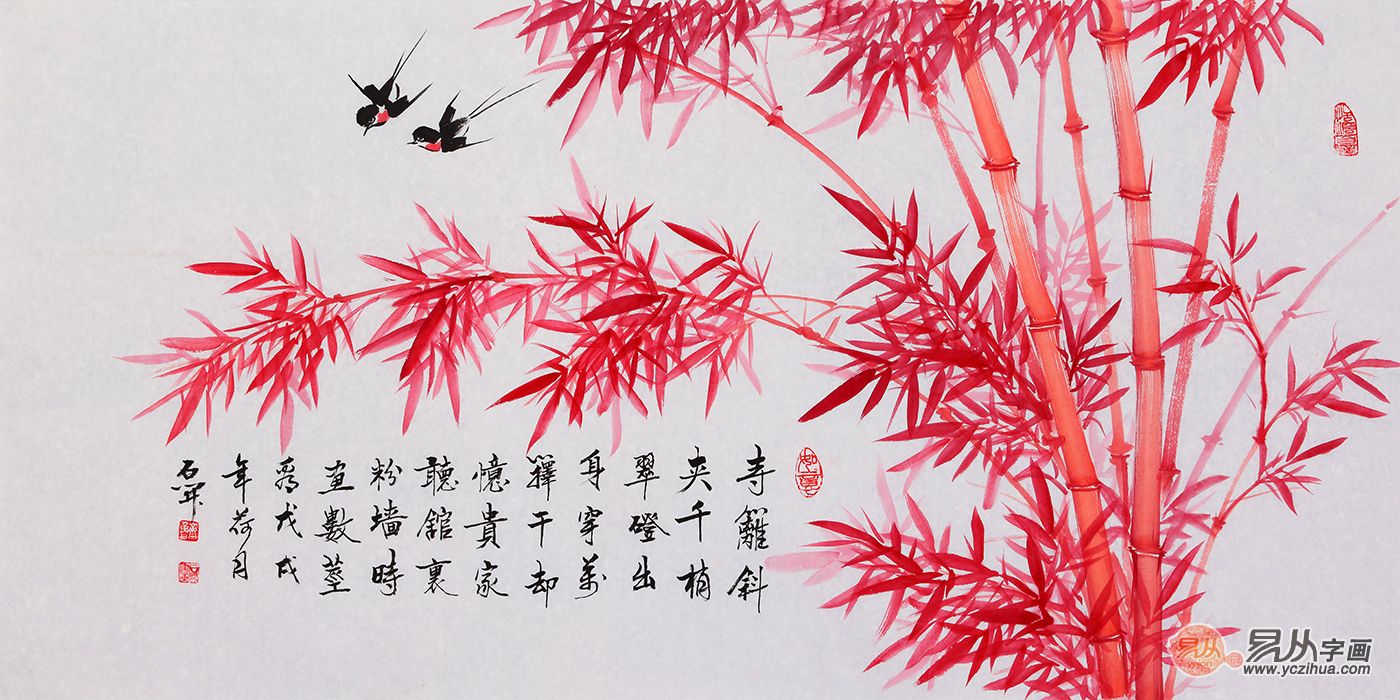 寺籬斜
夾千梢
翠磴出
身穿萬
籜干却
憶貴家
聽館裏
粉墙時
畫數莖
戊戌
年荷月
易从字画
www.yczihua.com